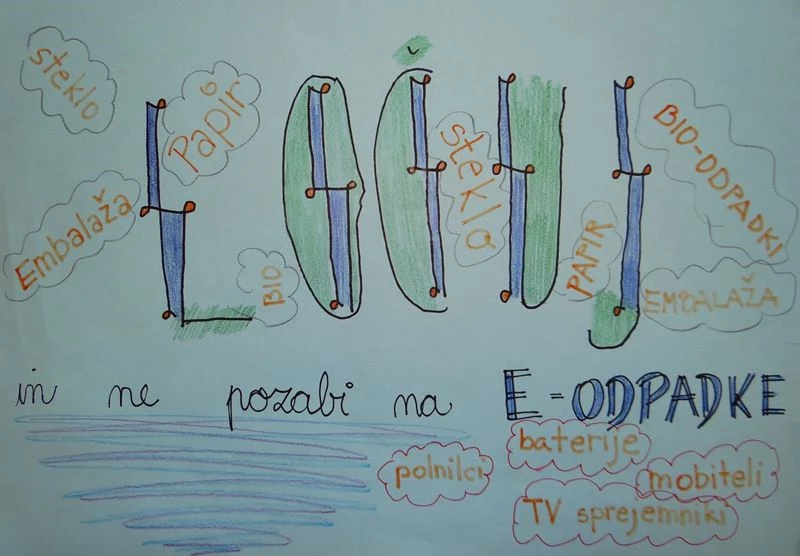 steklo
Papir
Embalaža
LOČUJ
BIO
steklo
PAPIR
BIO-ODPADKI
EMBALAŽA
in ne pozabi na E-ODPADKE
baterije
polnilci
mobiteli
TV sprejemniki